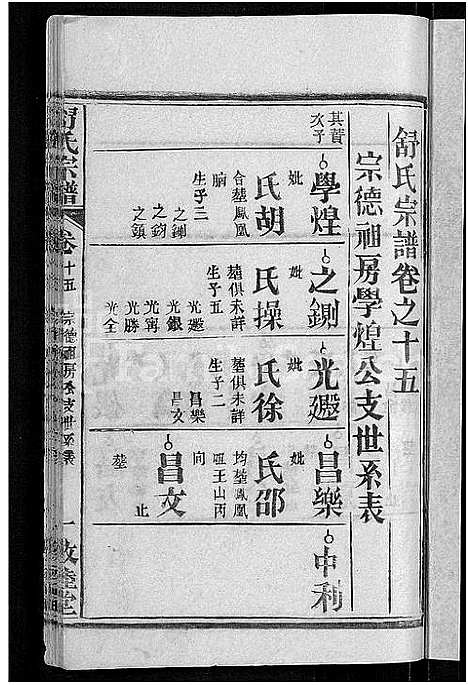 舒氏宗譜卷之十五
宗德祖房學煌公支世系表
其蕡
次子
學煌
妣
氏胡
合塟鳳凰
腦
生子三
之鍘
之鈞
之鎮
之鍘
妣
氏操
塟俱未詳
生子五
光遲
光銀
光寯
光勝
光全
光遲
妣
氏徐
塟俱未詳
生子二
昌樂
昌文
昌樂
妣
氏邵
均塟鳳凰
王山丙
向
昌文
塟
止
中利
舒氏宗譜
卷十五
宗德祖房系支世系表
一
敦睦堂